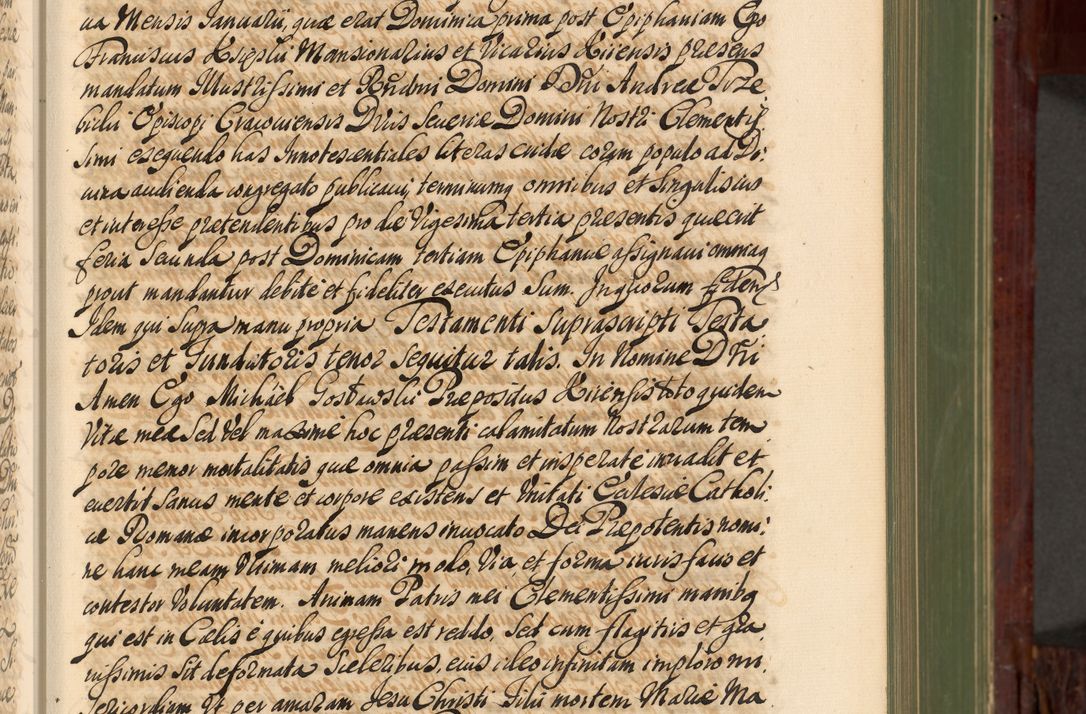 ua Mensis Januarii, quæ erat Dominica prima post Epiphaniam Ego
Franciscus Mansionarius et Vicarius Xiiensis præsens
mandatum Illustrissimi et Rndmi Domini D Dni Andreæ Trze
bicki Episcopi Cracouiensis Ducis Seueriæ Domini Nostri Clementis
simi exequendo has Innotescentiales literas coram populo ad Di:
uina audienda congregato publicaui, terminumq omnibus et Singulis ius
et interesse pretendentibus pro die Vigesima tertia præsentis quæ erit
feria Secunda post Dominicam tertiam Epiphaniæ assignaui omniaq
prout mandantur debite et fideliter executus Sum. In quorum fidem
Idem qui Supra manu propria Testamenti Suprascripti Testa
toris et Fundatoris tenor Sequitur talis. In Nomine D Nri
Amen Ego Michael Præpositus Xiiensis toto quidem
Vitæ meæ Sed Vel maxime hoc præsenti calamitatum Nostrarum tem
pore memor mortalitatis quæ omnia passim et insperate inuadit et
euertit Sanus mente et corpore existens et Vnitati Ecclesiæ Catholi:
cæ Romanæ incorporatus manens inuocato Dei Præpotentis nomi:
ne hanc meam Vltimam meliori modo, Via, et forma iuris facio et
contestor Voluntatem. Animam Patris mei Clementissimi manibq
qui est in Cælis è quibus egressa est reddo, Sed cum flagitiis et gra
uissimis Sit deformata Sceleribus, eius ideo infinitam imploro mi,
sericordiam Vt per amaram Jesu Christi Filii mortem Mariæ Ma